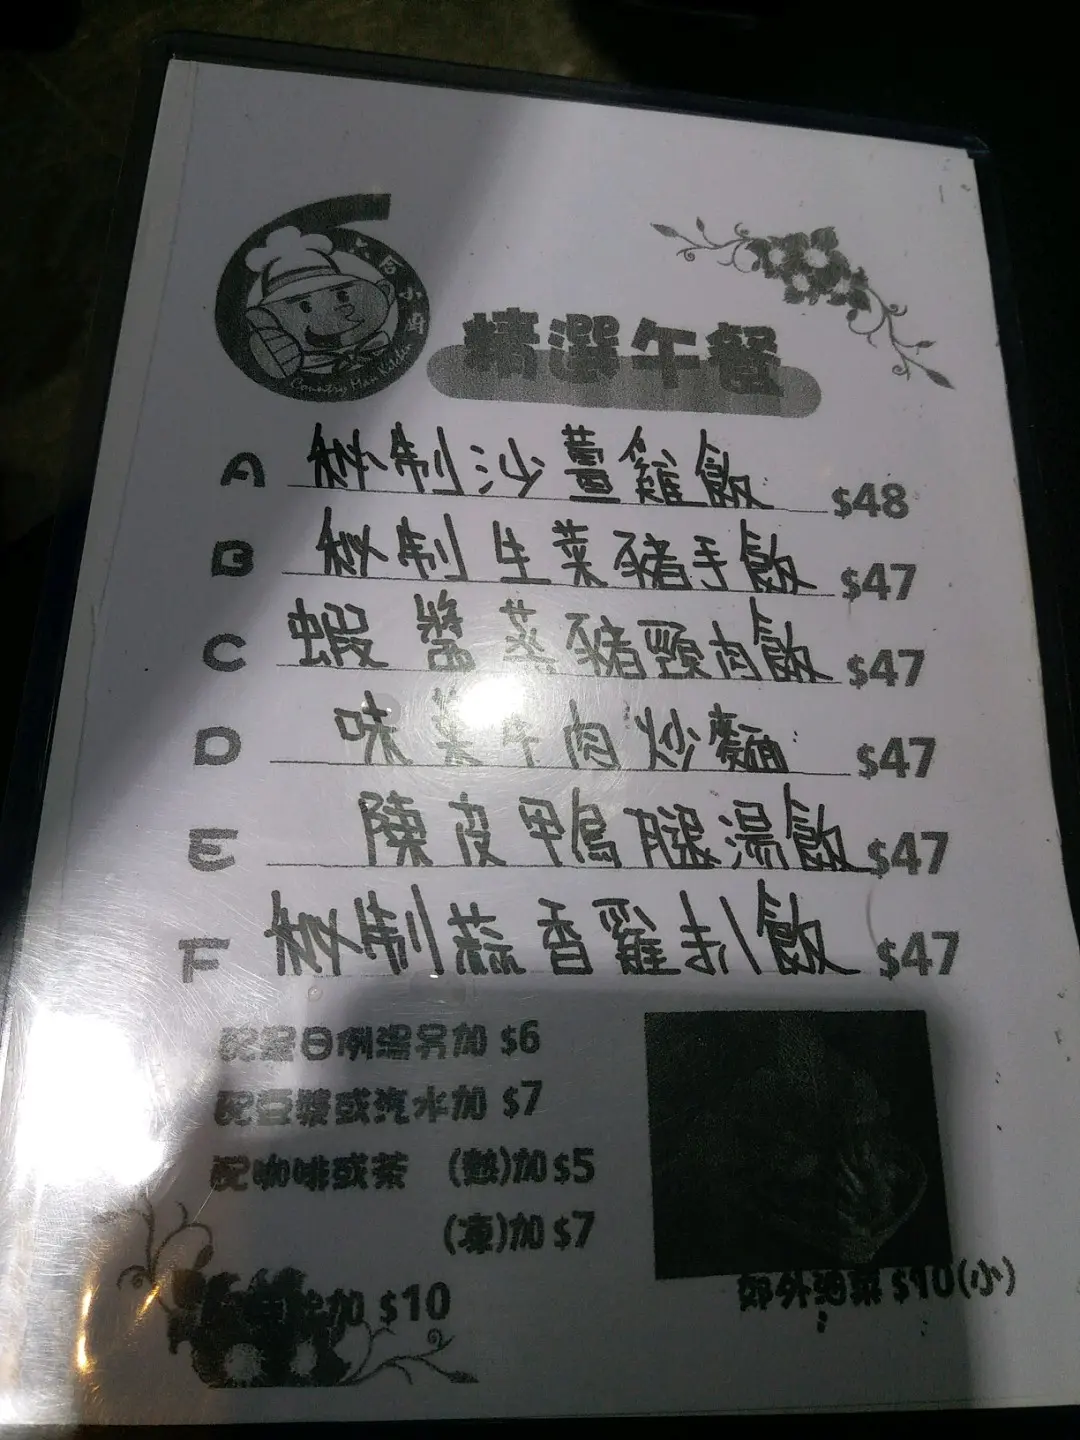 Country Man Kitchen
精選午餐
A 秘制沙薑雞飯 $48
B 秘制生菜豬手飯 $47
C 蝦醬蒸豬頸肉飯 $47
D 味菜牛肉炒麵 $47
E 陳皮鴨腿湯飯 $47
F 秘制蒜香雞扒飯 $47
配是日例湯另加 $6
配豆漿或汽水加 $7
配咖啡或茶 (熱)加 $5
(凍)加 $7
加 $10
郊外油菜 $10(小)